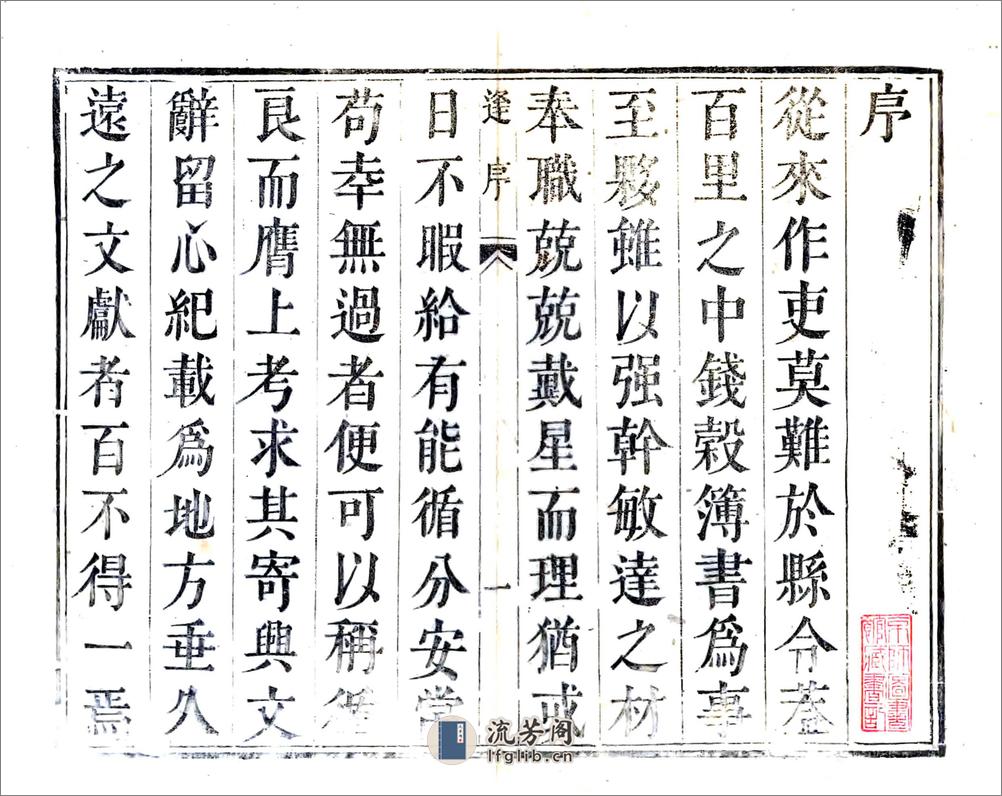 序
從來作吏莫難於縣令葢
百里之中錢穀簿書爲事
至夥雖以强幹敏達之材
奉職兢兢戴星而理猶或
逢 序 一
日不暇給有能循分安常
苟幸無過者便可以稱循
良而膺上考求其寄興文
辭留心紀載爲地方垂久
遠之文獻者百不得一焉
流芳阁
lfglib.cn